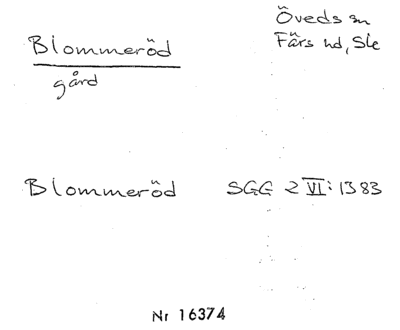 Öveds sn
Blommeröd
Färs hd, Ske
gård
Blommeröd SGG 2 VI: 1383
Nr 16374